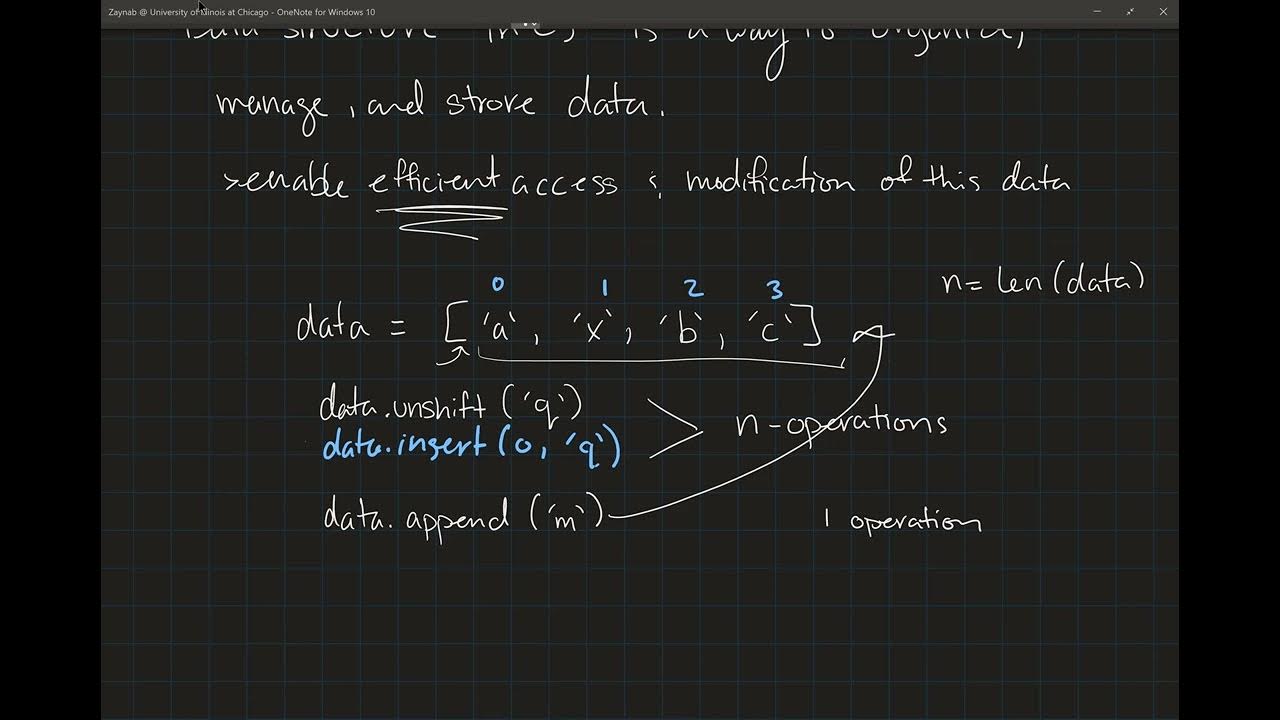 Zaynab @ University of Illinois at Chicago - OneNote for Windows 10
Data structure is a way to organize,
manage, and strove data.
>enable efficient access & modification of this data
n= len(data)
0 1 2 3
data = ['a', 'x', 'b', 'c']
data.unshift('q')
data.insert(0, 'q')
n-operations
data.append('m')
1 operation